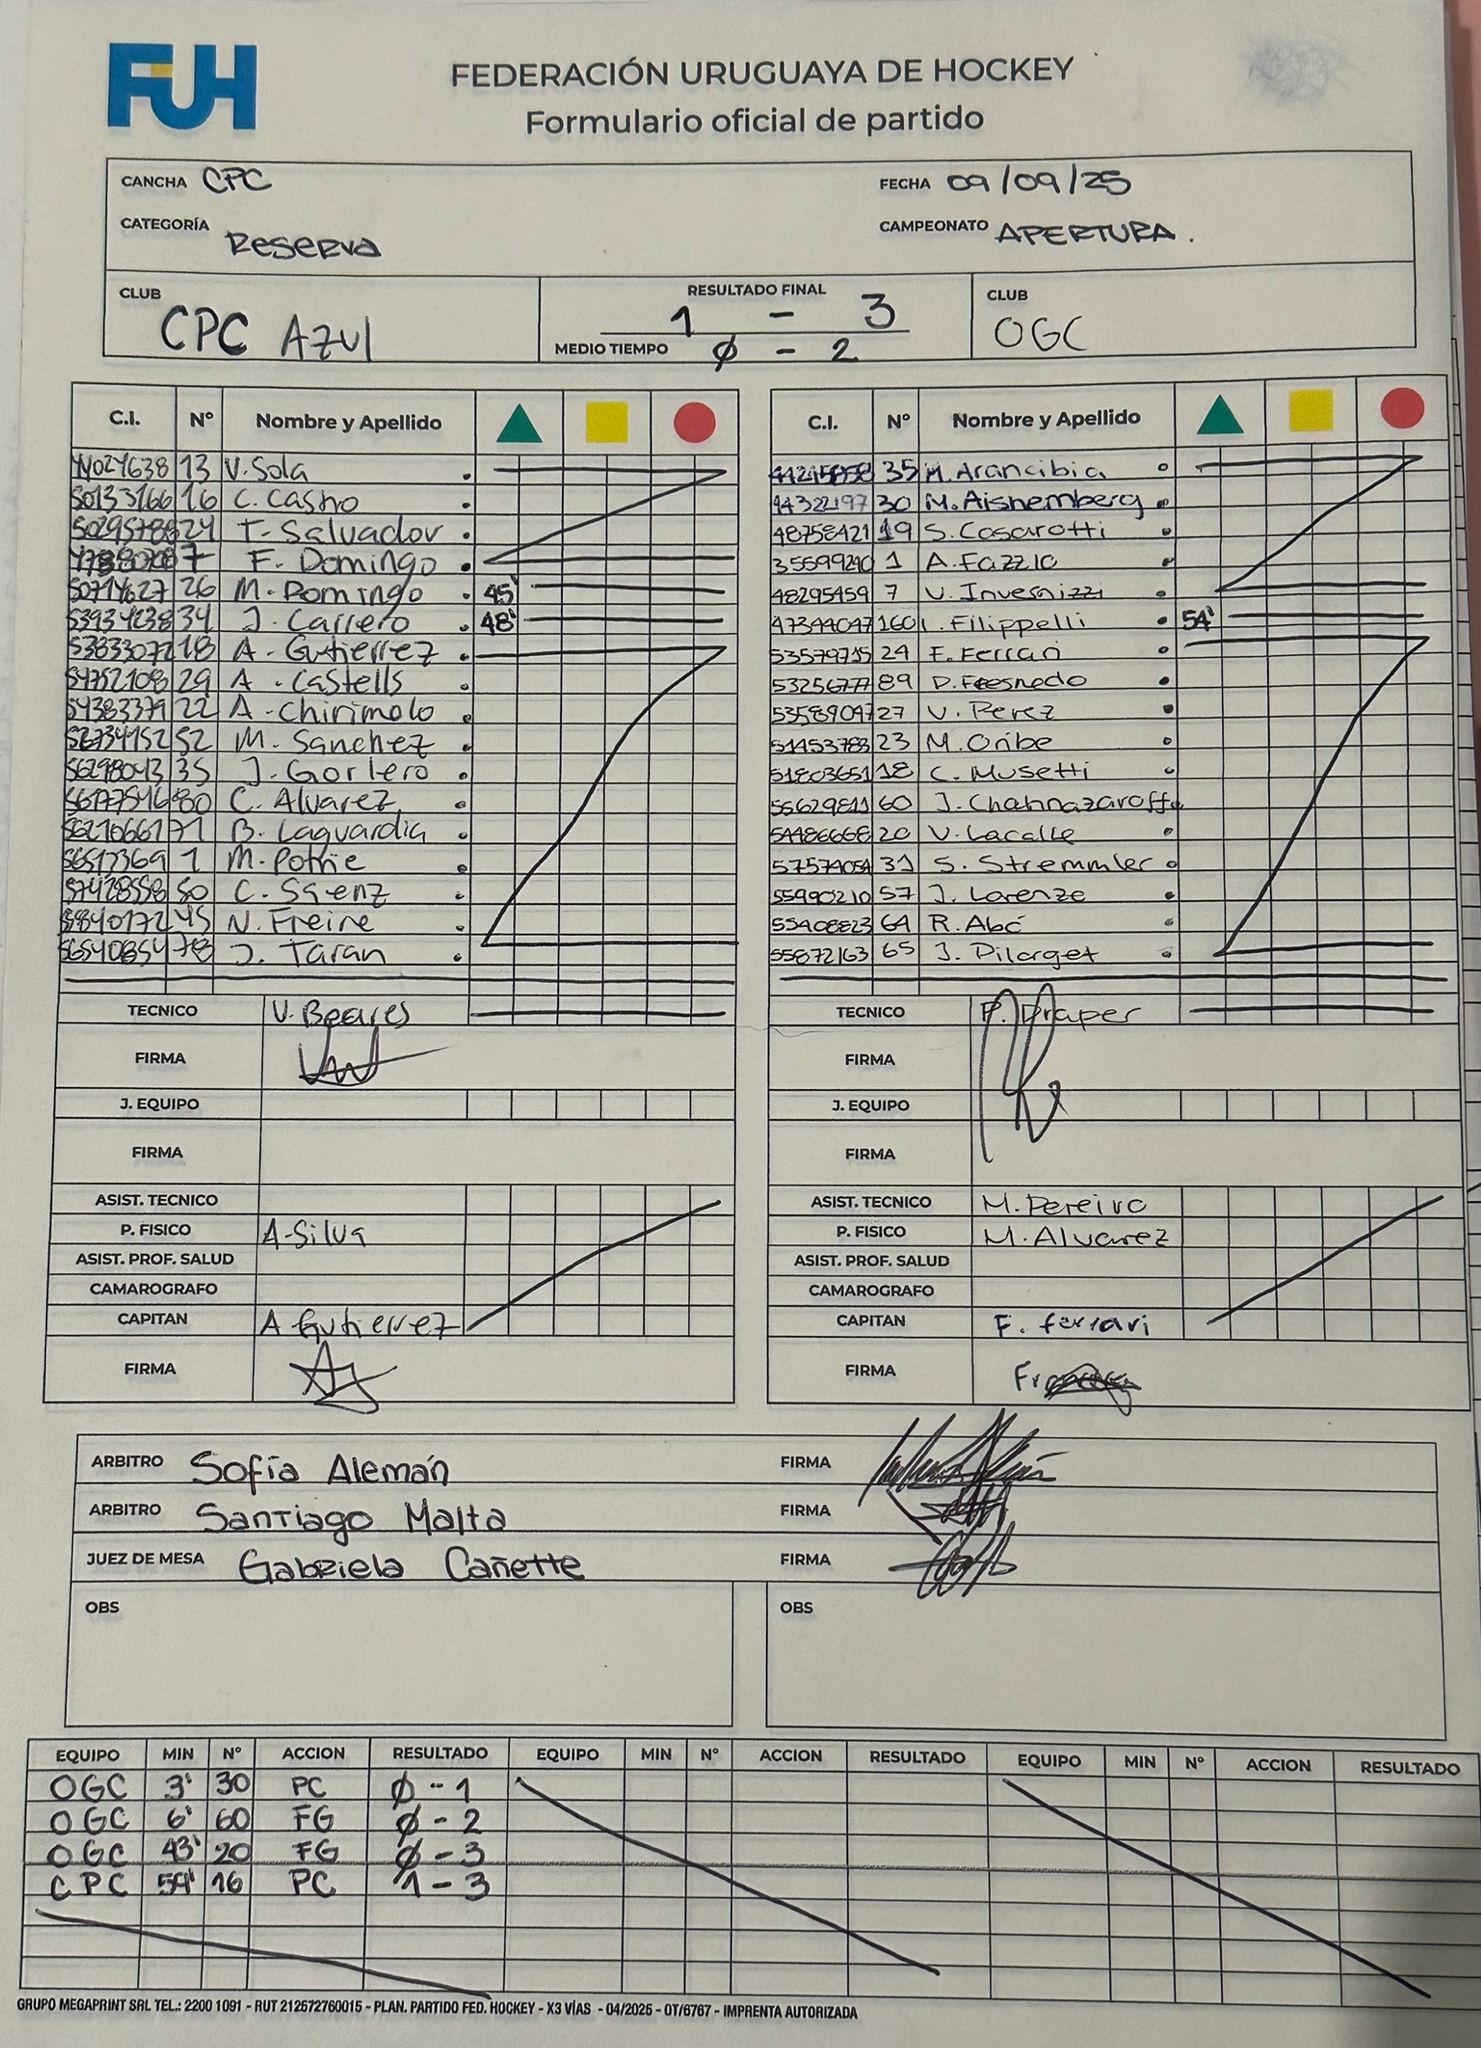 FUH
FEDERACIÓN URUGUAYA DE HOCKEY
Formulario oficial de partido
CANCHA CPC FECHA 09/09/25
CATEGORÍA Reserva CAMPEONATO APERTURA.
CLUB CPC Azul RESULTADO FINAL 1 - 3 CLUB OGC
MEDIO TIEMPO Ø - 2
C.I. Nº Nombre y Apellido C.I. Nº Nombre y Apellido
13 V. Sola 35 M. Arancibia
50133166 16 C. Castro 44322197 30 M. Aisnemberg
24 T. Salvador 48758421 19 S. Casarotti
7 F. Domingo 35599240 1 A. Fazzio
50714627 26 M. Domingo 45' 48295459 7 V. Invernizzi
53934238 34 J. Carrero 48' 47344047 160 Filippelli 54'
53833072 18 A. Gutierrez 53579715 24 F. Ferrari
54752108 29 A. Castells 53256777 89 D. Fresnedo
54383379 22 A. Chirimolo 53589047 27 V. Perez
56734152 52 M. Sanchez 51453783 23 M. Oribe
56298043 35 J. Gorlero 51803651 18 C. Musetti
80 C. Alvarez 55629811 60 J. Chahnazaroff
71 B. Laguardia 54486668 20 V. Lacalle
56517369 1 M. Potrie 57574054 31 S. Stremmler
57428558 50 C. Saenz 55990210 57 J. Lorenze
45 N. Freire 55408823 64 R. Abó
56540854 78 J. Taran 55872163 65 J. Pilarget
TECNICO V. Beares TECNICO P. Draper
FIRMA FIRMA
J. EQUIPO J. EQUIPO
FIRMA FIRMA
ASIST. TECNICO ASIST. TECNICO M. Pereira
P. FISICO A. Silva P. FISICO M. Alvarez
ASIST. PROF. SALUD ASIST. PROF. SALUD
CAMAROGRAFO CAMAROGRAFO
CAPITAN A Gutierrez CAPITAN F. ferrari
FIRMA FIRMA
ARBITRO Sofía Alemán FIRMA
ARBITRO Santiago Malta FIRMA
JUEZ DE MESA Gabriela Cañette FIRMA
OBS OBS
EQUIPO MIN Nº ACCION RESULTADO EQUIPO MIN Nº ACCION RESULTADO EQUIPO MIN Nº ACCION RESULTADO
OGC 3' 30 PC Ø - 1
OGC 6' 60 FG Ø - 2
OGC 43' 20 FG Ø - 3
CPC 59' 16 PC 1 - 3
GRUPO MEGAPRINT SRL TEL.: 2200 1091 - RUT 212672760015 - PLAN. PARTIDO FED. HOCKEY - X3 VÍAS - 04/2025 - OT/6767 - IMPRENTA AUTORIZADA